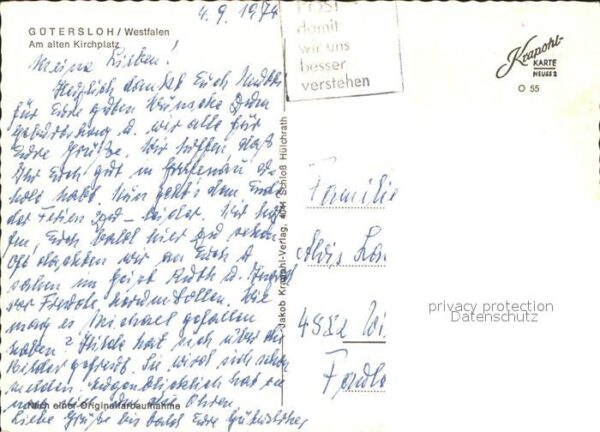 4.9.1974
GÜTERSLOH / Westfalen
Am alten Kirchplatz
POST
damit
wir uns
besser
verstehen
Krapohl-
KARTE
NEUSS 2
O 55
Meine Lieben!
Herzlich dankt Euch Mutti
für Eure guten Wünsche zum
Geburtstag u. wir alle für
Eure Grüße. Wir hoffen daß
Ihr Euch gut in er-
holt habt. Nun geht's dem Ende
der Ferien zu - leider. Wir hof-
fen, Euch bald hier zu sehen.
Oft dachten wir an Euch u.
sahen im Geist Ruth u.
vor Freude
mag es Michael gefallen
haben? hat sich über die
Bilder gefreut. Sie wird sich schon
melden. Augenblicklich hat sie
noch viel um die Ohren.
Liebe Grüße bis bald Eure Gütersloher
Nach einer Originalfarbaufnahme
Jakob Krapohl-Verlag, 4041 Schloß Hülchrath
Familie
privacy protection
Datenschutz